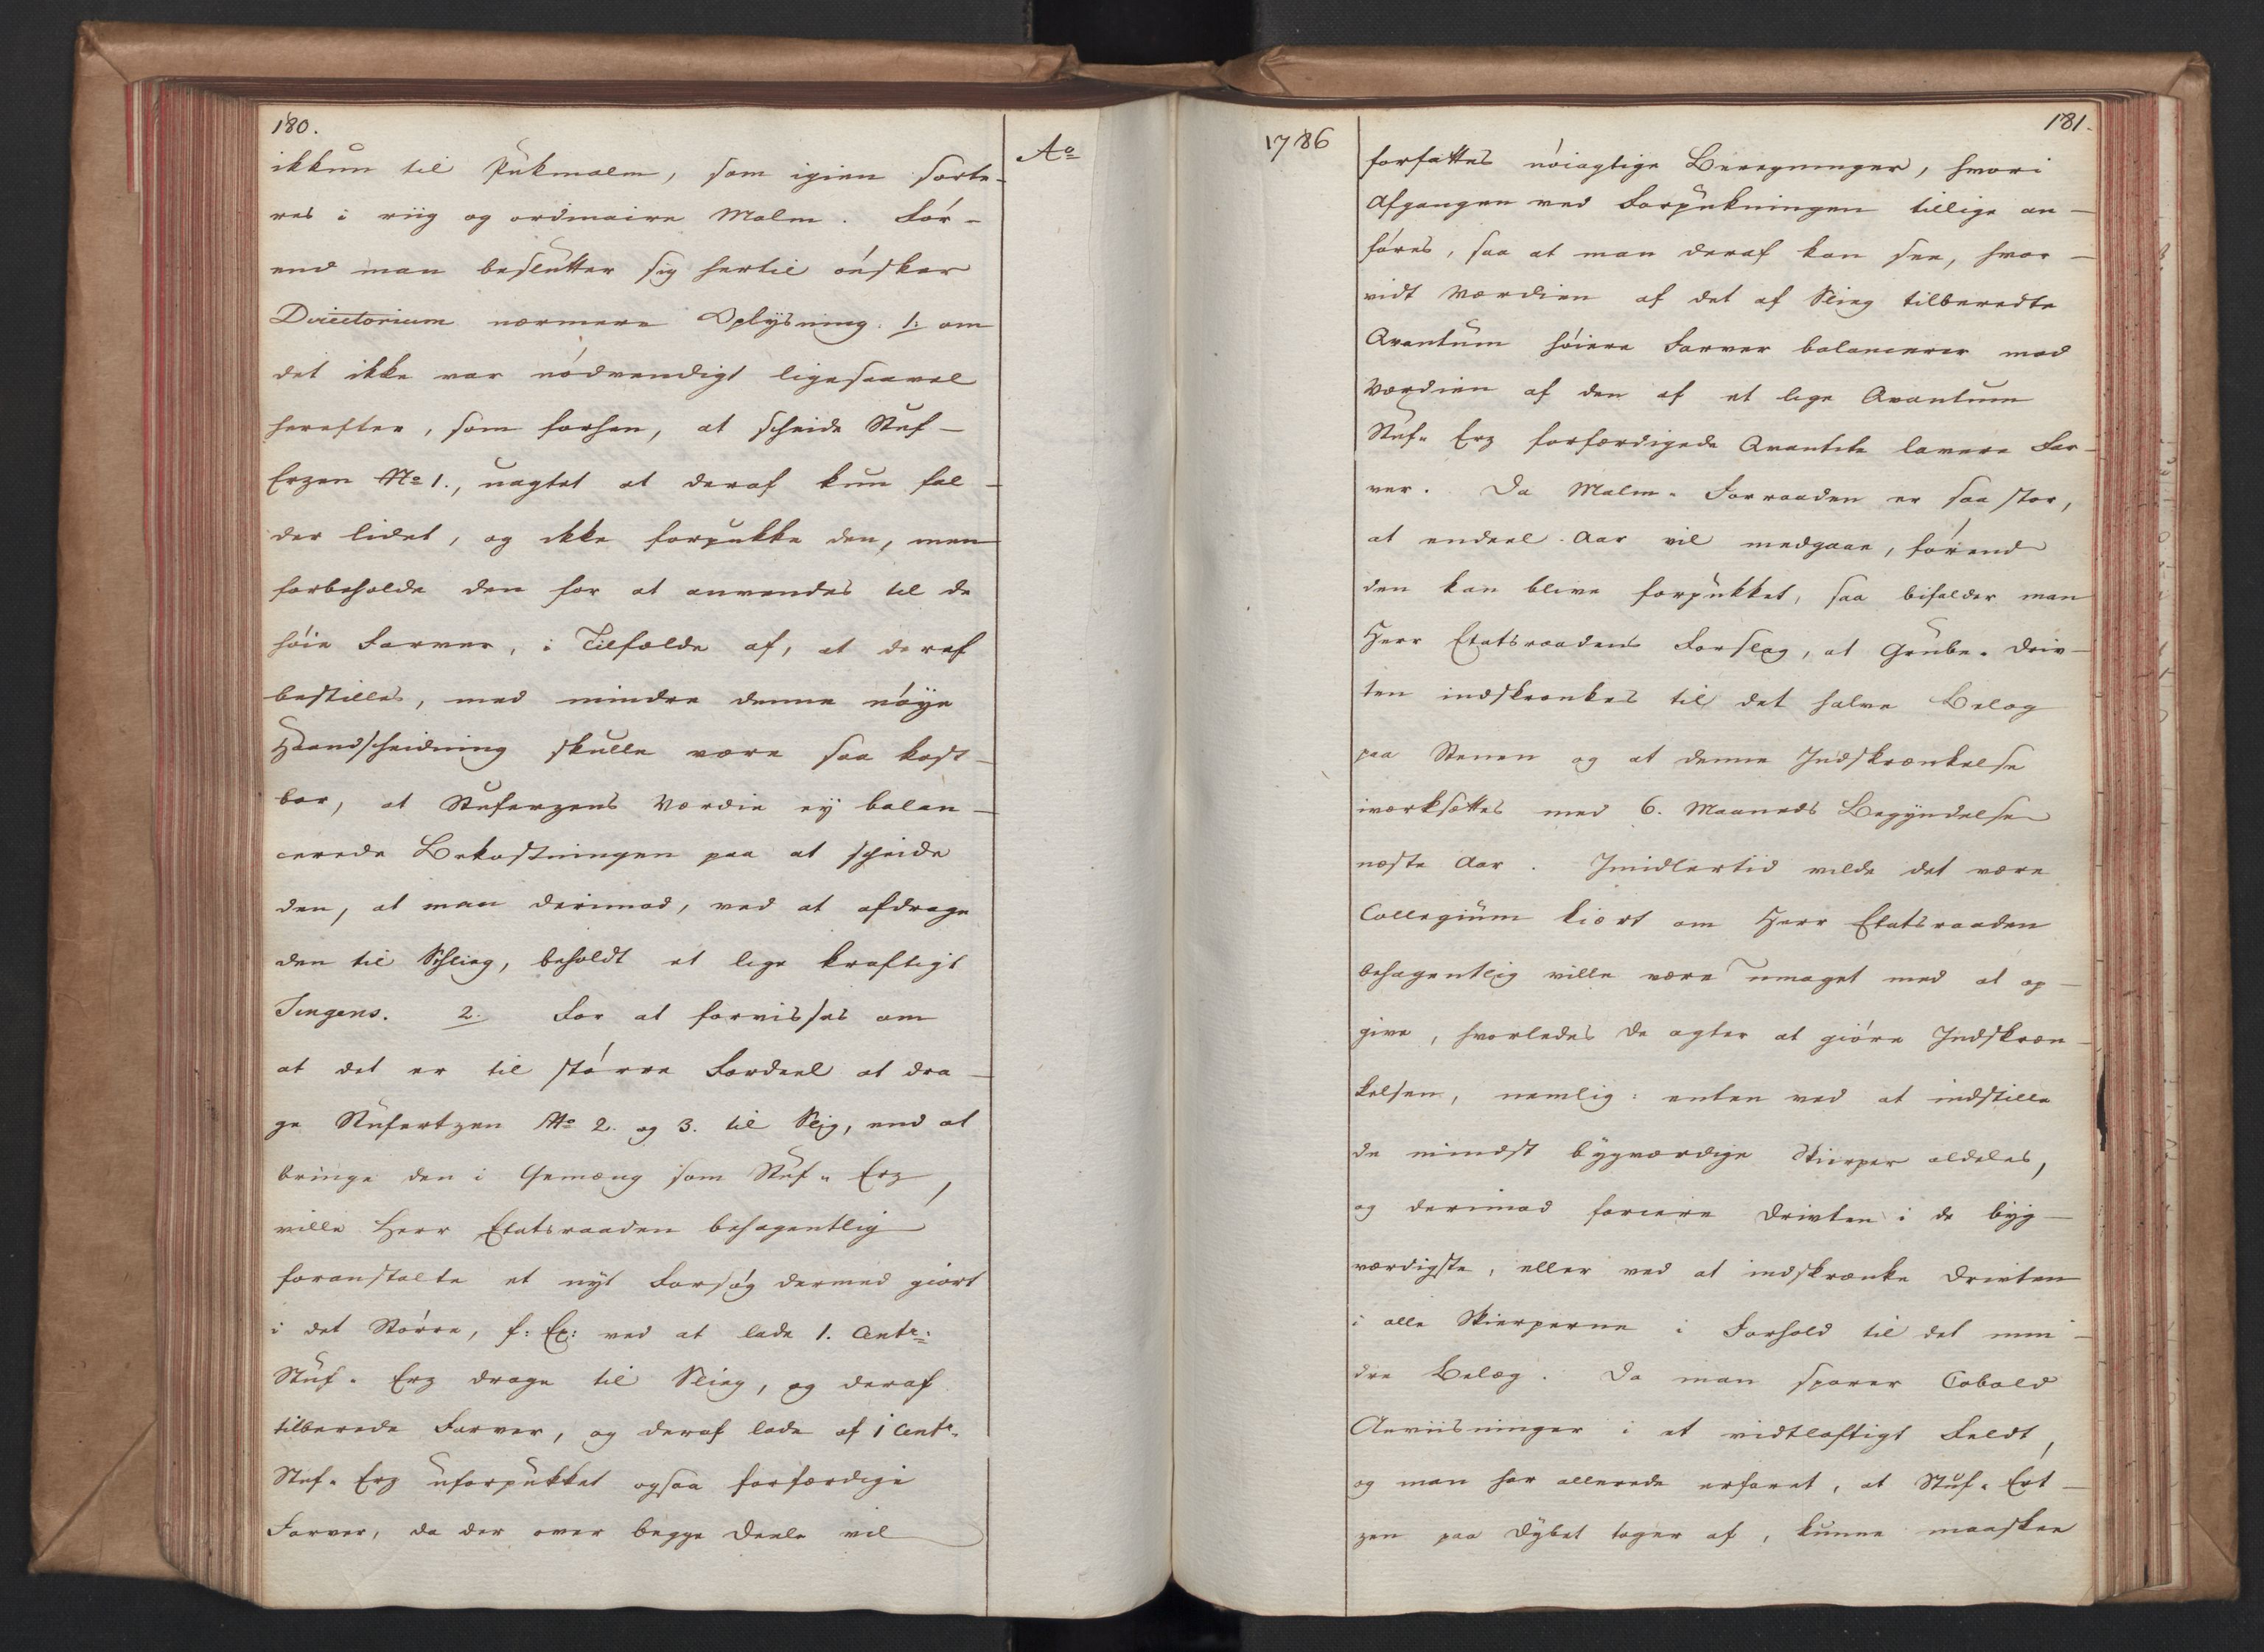 180.
ikkun til Pukmalm, som igien sorte-
res i riig og ordinaire Malm. För-
end man beslutter sig hertil önsker
Directorium nærmere Oplysning: 1. om
det ikke var nödvendigt ligesaavel
herefter, som forhen, at scheide Stuf-
Erzen No 1., uagtet at deraf kun fal-
der lidet, og ikke forpukke den, men
forbeholde den for at anvendes til de
höie Farver, i Tilfælde af, at deraf
bestilles, med mindre denne nöye
Haandscheidning skulle være saa kost-
bar, at Stuferzens Værdie ey balan-
cerede Bekostningen paa at scheide
den, at man derimod, ved at afdrage
den til Schlieg, beholdt et lige kraftigt
Ingens. 2. For at forvisses om
at det er til större Fordeel at dra-
ge Stufertzen No 2. og 3. til Slig, end at
bringe den i Gemæng som Stuf- Erz,
ville Herr Etatsraaden behagentlig
foranstalte et nyt Forsög dermed giort
i det Större, f: Ex: ved at lade 1. Centr:
Stuf- Erz drage til Slieg, og deraf
tilberede Farver, og deraf lade af 1 Centr.
Stuf- Erz uforpukket ogsaa forfærdige
Farver, da der over begge Deele vil
Ao
1786
181.
forfattes nöiagtige Beregninger, hvori
Afgangen ved Forpukningen tillige an-
föres, saa at man deraf kan see, hvor-
vidt Værdien af det af Slieg tilberedte
Qvantum höiere Farver balancerer mod
Værdien af den af et lige Qvantum
Stuf- Erz forfærdigede Qvantite lavere Far-
ver. Da Malm- Forraaden er saa stor,
at endeel Aar vil medgaae, förend
den kan blive forpukket, saa bifalder man
Herr Etatsraadens Forslag, at Grube- Driv-
ten indskrænkes til det halve Belæg
paa Stenen og at denne Indskrænkelse
iværksættes med 6. Maaneds Begyndelse
næste Aar. Imidlertid vilde det være
Collegium kiært om Herr Etatsraaden
behagentlig ville være umaget med at op-
give, hvorledes De agter at giöre Indskræn-
kelsen, nemlig: enten ved at indstille
de mindst bygværdige Skierper aldeles,
og derimod forcere Drivten i de byg-
værdigste, eller ved at indskrænke Drivten
i alle Skierperne i Forhold til det min-
dre Belæg. Da man sporer Cobold
Anviisninger i et vidtløftigt Feldt,
og man har allerede erfaret, at Stuf- Ert-
zen paa Dybet tager af, kunne maaskee